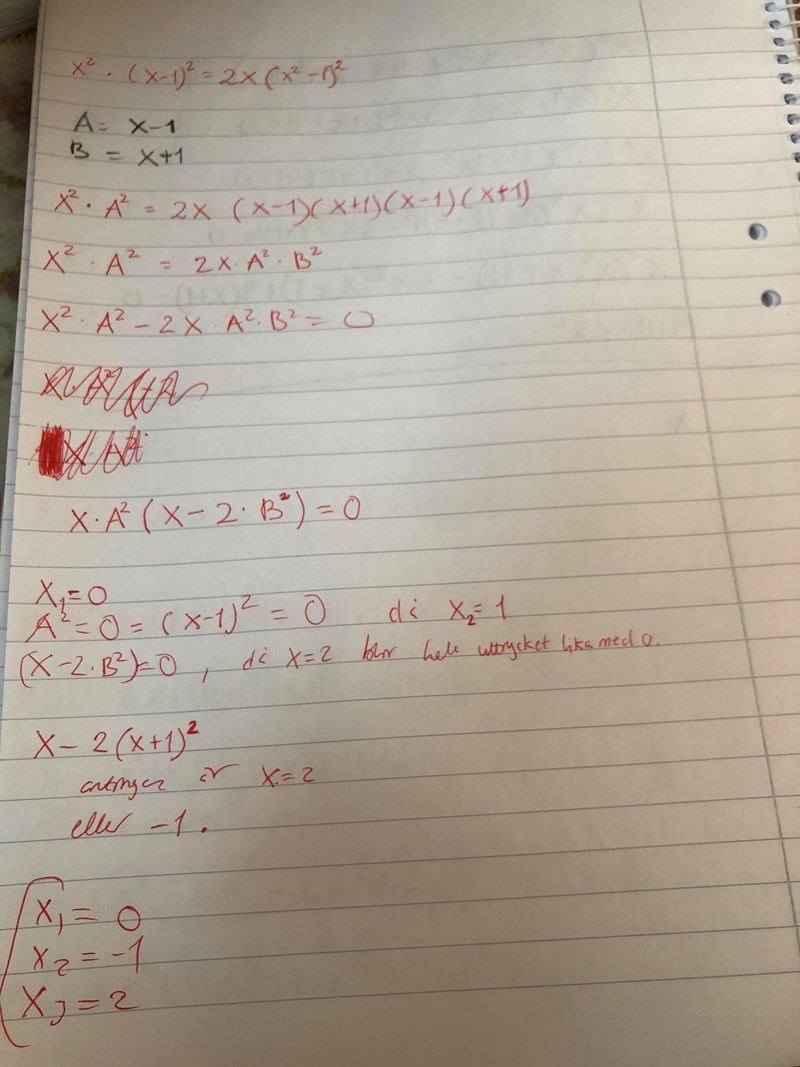 x² · (x-1)² = 2x(x² - 1)²
A = x-1
B = x+1
x² · A² = 2x (x-1)(x+1)(x-1)(x+1)
x² · A² = 2x · A² · B²
x² · A² - 2x · A² · B² = 0
x · A² (x - 2 · B²) = 0
x₁ = 0
A² = 0 = (x-1)² = 0 då x₂ = 1
(x - 2 · B²) = 0 , då x = 2 blir hela uttrycket lika med 0.
x - 2(x+1)²
antingen är x = 2
eller -1.
x₁ = 0
x₂ = -1
x₃ = 2